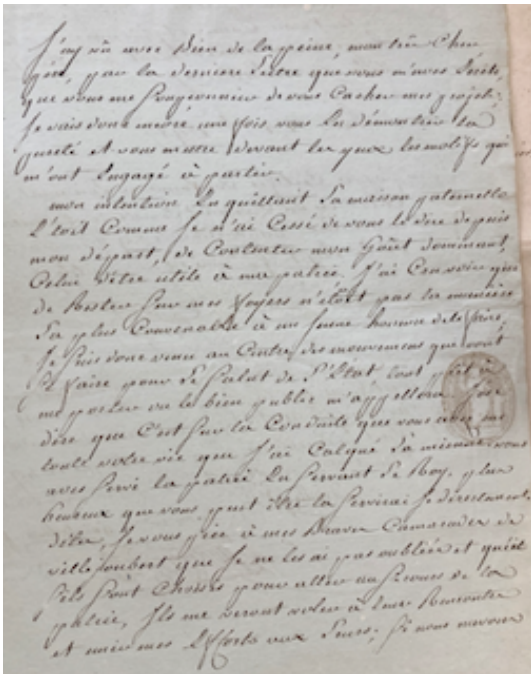 J'ay vu avec Bien de la peine, mon très Cher
père, par la derniere Lettre que vous m'aves Écrite,
que vous me Soupçonnier de vous Cacher mes projets.
Je vais donc encore une fois vous En démontrer la
pureté et vous mettre devant les yeux les motifs qui
m'ont Engagé à partir.
mon intention En quittant La maison paternelle
Étoit Comme Je n'ai Cessé de vous le dire depuis
mon départ, de Contenter mon Goût dominant,
Celui d'être utile à ma patrie. J'ai Cru voir que
de Rester Sur mes foyers n'étoit pas la maniere
La plus Convenable à un Jeune homme de le faire,
Je Suis donc venu au Centre des mouvemens que vont
Se faire pour Le Salut de L'Etat tout prêt à
me porter ou le bien public m'appellera. J'ose
dire que C'est Sur la Conduite que vous avez
toute votre vie que J'ai Calqué La mienne. vous
aves Servi la patrie En Servant Le Roy, plus
heureux que vous peut être la Servirai Je directement
Je vous prie à mes Braves Camarades de
villejoubert que Je ne les ai pas oubliés et que
S'ils Sont Choisis pour aller au Secours de la
patrie, Ils me verront voler à leur Rencontre
et unir mes Efforts aux Leurs; Si nous